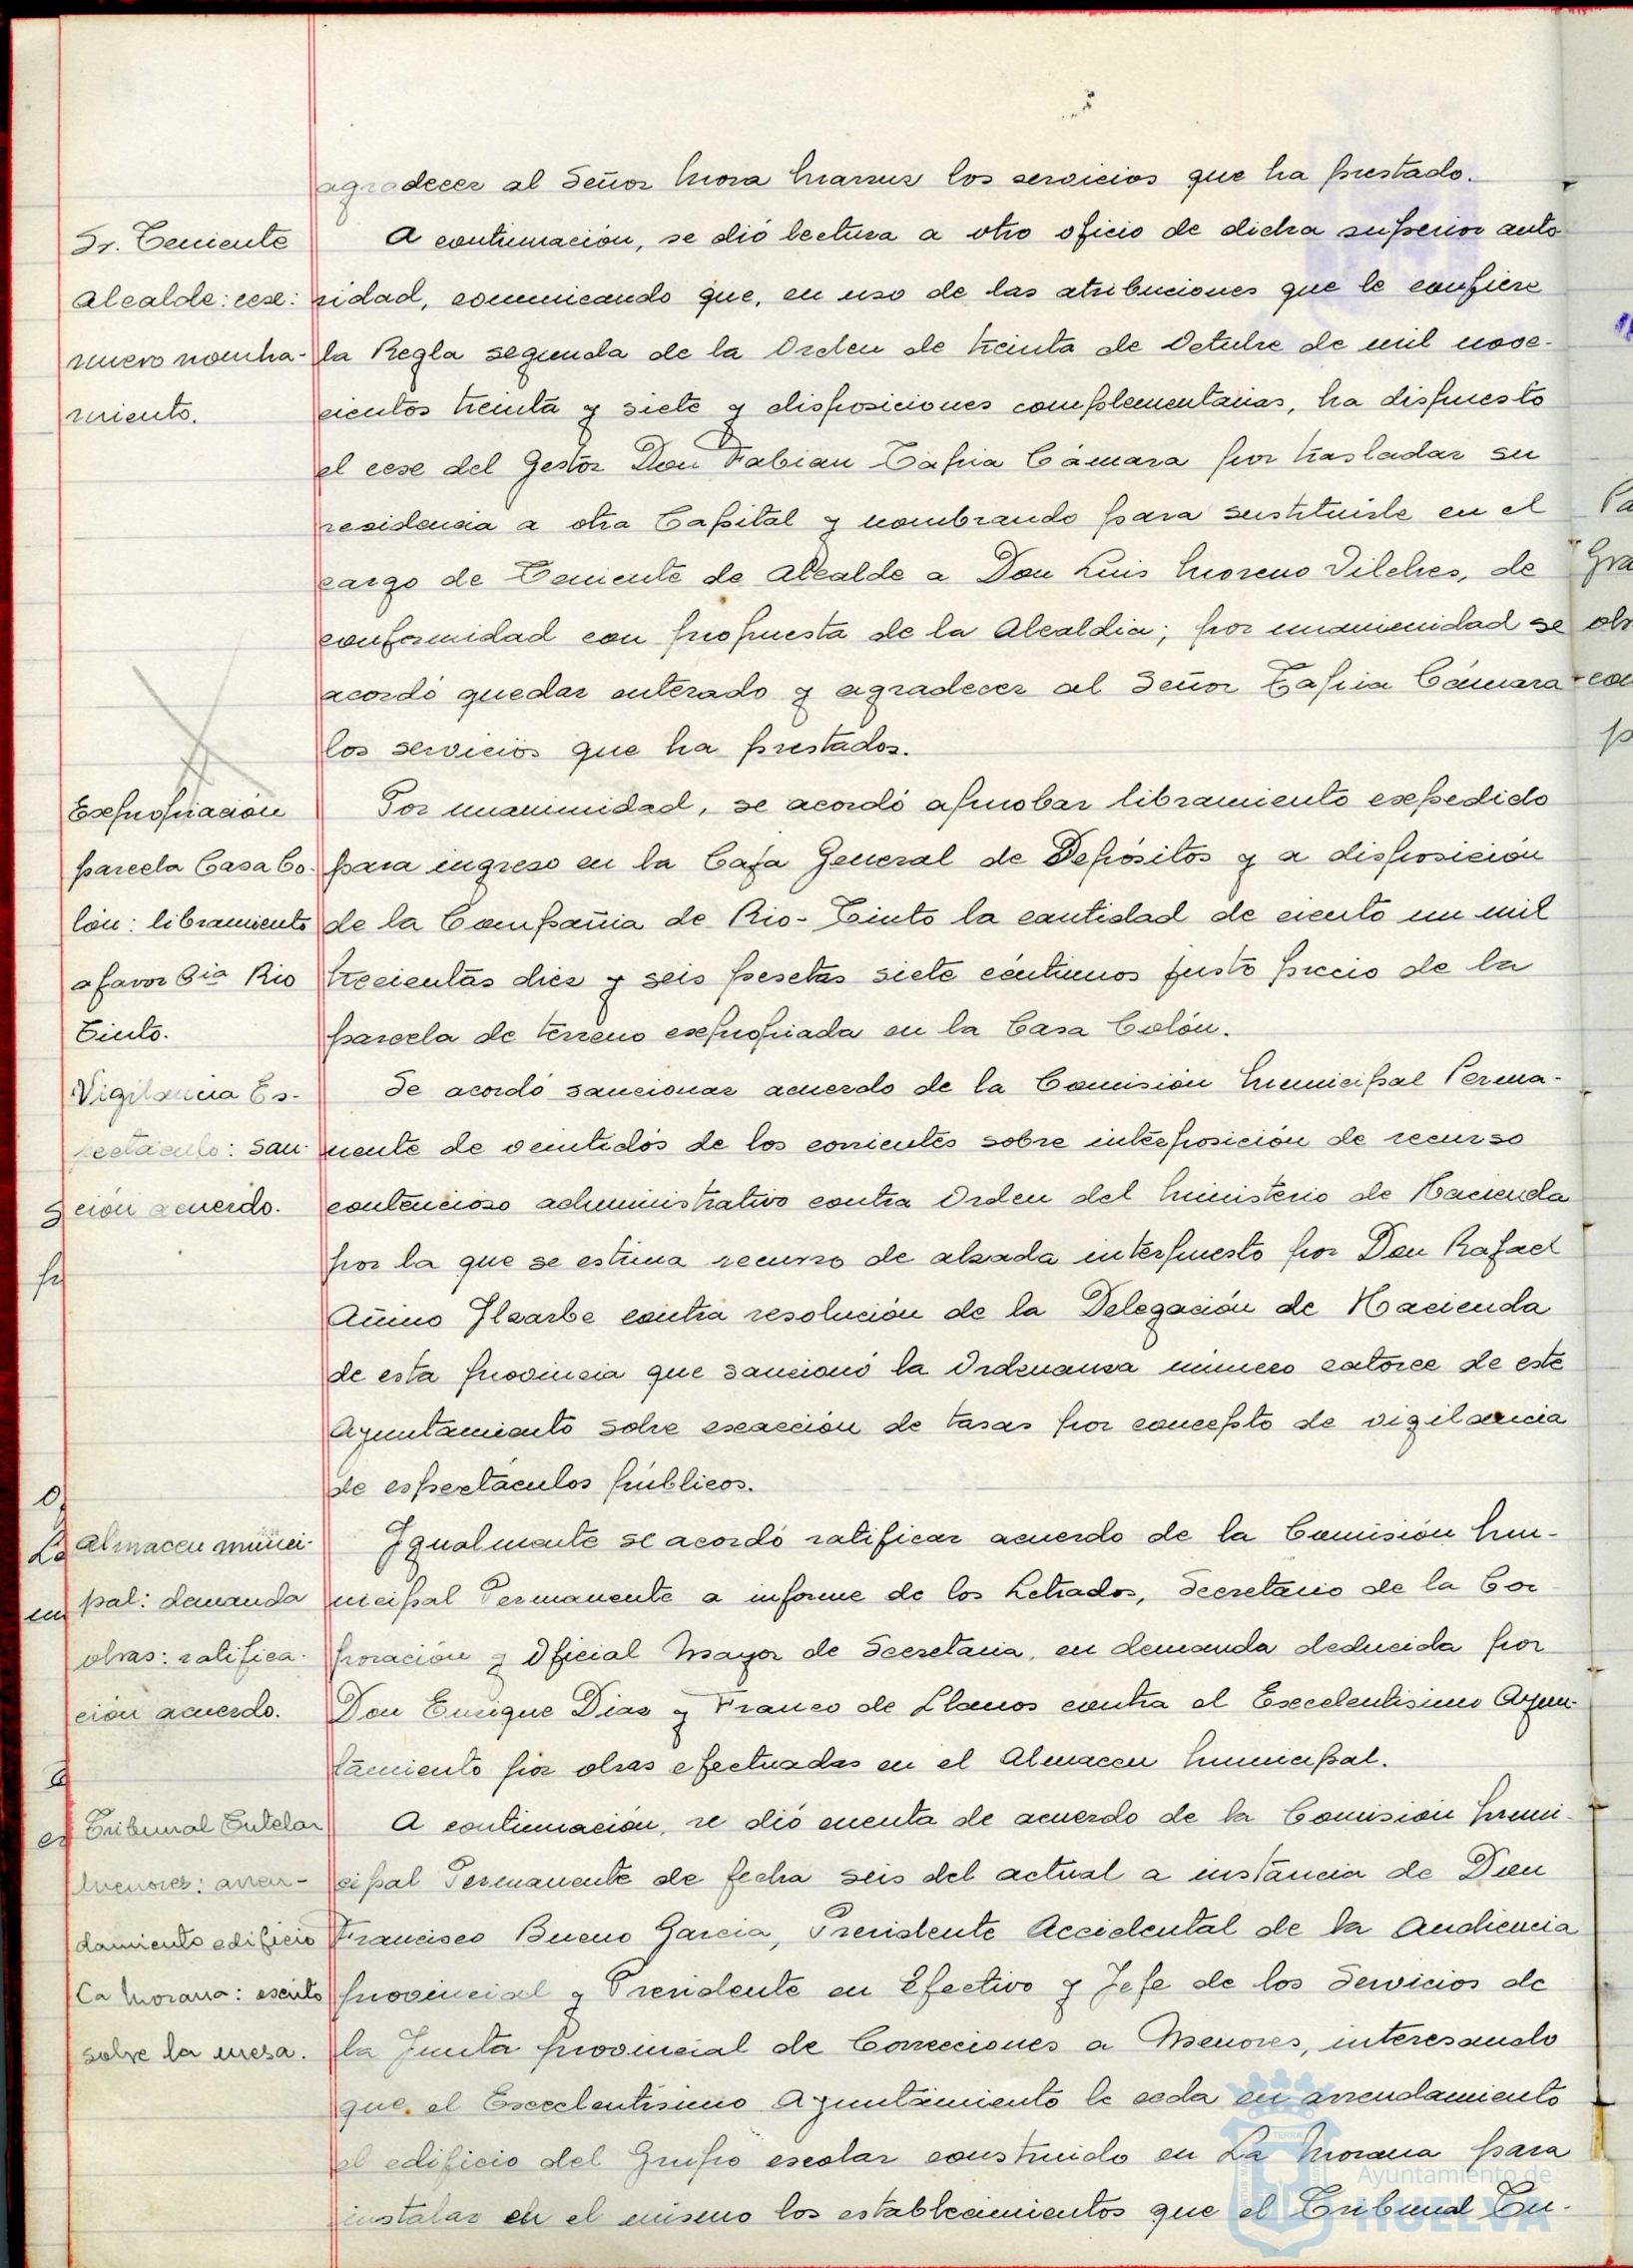 agradecer al Señor Mora Marrus los servicios que ha prestado.
Sr. Teniente
Alcalde: cese:
nuevo nombra-
miento.
A continuación, se dió lectura a otro oficio de dicha superior auto
ridad, comunicando que, en uso de las atribuciones que le confiere
la Regla segunda de la Orden de treinta de Octubre de mil nove-
cientos treinta y siete y disposiciones complementarias, ha dispuesto
el cese del Gestor Don Fabian Tapia Cámara por trasladar su
residencia a otra Capital y nombrando para sustituirle en el
cargo de Teniente de Alcalde a Don Luis Moreno Vilches, de
conformidad con propuesta de la Alcaldia; por unanimidad se
acordó quedar enterado y agradecer al Señor Tapia Cámara
los servicios que ha prestados.
Exepropiación
parcela Casa Co-
lón: libramiento
a favor Cia Rio
Tinto.
Por unanimidad, se acordó aprobar libramiento exepedido
para ingreso en la Caja General de Depósitos y a disposición
de la Compañia de Rio-Tinto la cantidad de ciento un mil
trecientas diez y seis pesetas siete céntimos justo precio de la
parcela de terreno exepropiada en la Casa Colón.
Vigilancia Es-
pectáculo: san-
ción acuerdo.
Se acordó sancionar acuerdo de la Comisión Municipal Perma-
nente de veintidós de los corrientes sobre interposición de recurso
contencioso administrativo contra Orden del Ministerio de Hacienda
por la que se estima recurso de alzada interpuesto por Don Rafael
Añino Ilzarbe contra resolución de la Delegación de Hacienda
de esta provincia que sancionó la Ordenanza número catorce de este
Ayuntamiento sobre exacción de tasas por concepto de vigilancia
de espectáculos públicos.
Almacen munici-
pal: demanda
obras: ratifica-
ción acuerdo.
Igualmente se acordó ratificar acuerdo de la Comisión Mu-
nicipal Permanente a informe de los Letrados, Secretario de la Cor
poración y Oficial Mayor de Secretaria, en demanda deducida por
Don Enrique Diaz y Franco de Llanos contra el Execelentisimo Ayun-
tamiento por obras efectuadas en el Almacen Municipal.
Tribunal Tutelar
Menores: arren-
damiento edificio
La Morana: escrito
sobre la mesa.
A continuación, se dió cuenta de acuerdo de la Comisión Muni-
cipal Permanente de fecha seis del actual a instancia de Don
Francisco Bueno Garcia, Presidente Accidental de la Audiencia
provincial y Presidente en Efectivo y Jefe de los Servicios de
la Junta provincial de Correcciones a Menores, interesando
que el Execelentisimo Ayuntamiento le ceda en arrendamiento
el edificio del Grupo escolar construido en La Morana para
instalar en el mismo los establecimientos que el Tribunal Tu-
Ayuntamiento de
HUELVA